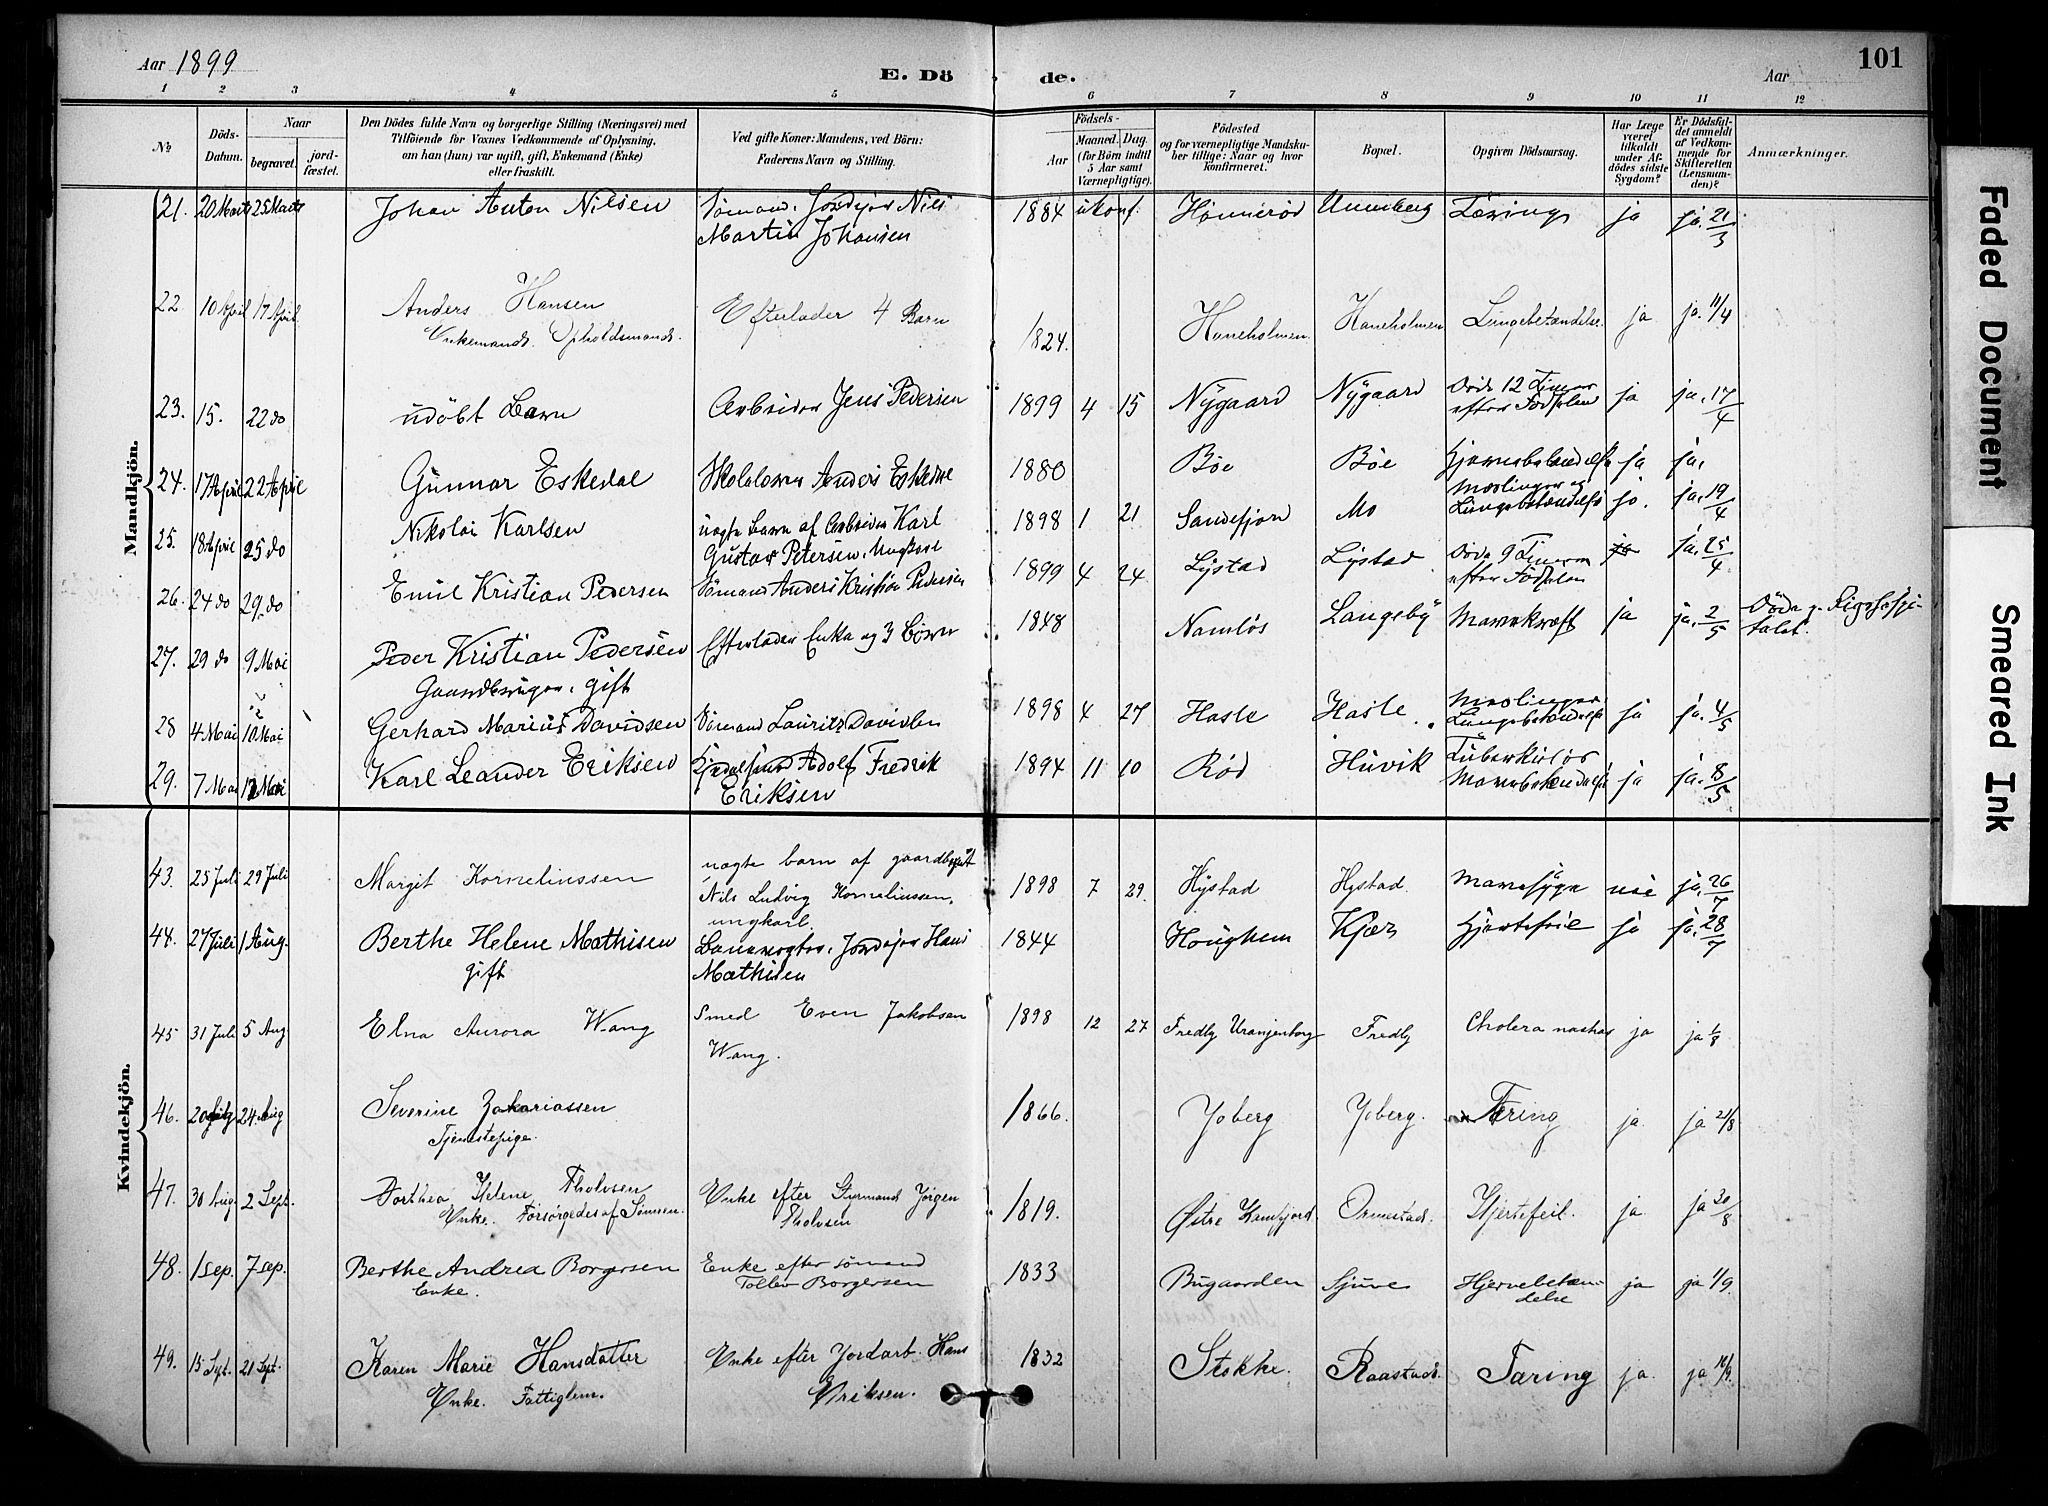 Aar 1899
E. Döde.
Aar
101
1 2 3 4 5 6 7 8 9 10 11 12
No
Döds-Datum.
Naar
begravet.
jord-fæstet.
Den Dödes fulde Navn og borgerlige Stilling (Næringsvei) med
Tilföiende for Voxnes Vedkommende af Oplysning,
om han (hun) var ugift, gift, Enkemand (Enke)
eller fraskilt.
Ved gifte Koner: Mandens, ved Börn:
Faderens Navn og Stilling.
Födsels-
Aar
Maaned. Dag.
(for Börn indtil
5 Aar samt
Værnepligtige).
Födested
og for værnepligtige Mandsku-
ber tillige: Naar og hvor
konfirmeret.
Bopæl.
Opgiven Dödsaarsag.
Har Læge
været
tilkaldt
under Af-
dödes sidste
Sygdom?
Er Dödsfal-
det anmeldt
af Vedkom-
mende for
Skifteretten
(Lensman-
den)?
Anmærkninger.
Mandkjön.
21. 20 Marts 25 Marts Johan Anton Nilsen Sømand, Nils 1884 ukonf. Hønnerød Unneberg Tæring ja ja. 21/3
Martin Johansen
22 10 April 17 April Anders Hansen Efterlader 4 Barn 1824. Haneholmen Haneholmen Lungebetændelse. ja ja. 11/4
Enkemand. Opholdsmand.
23. 15. 22 do udöbt Barn Arbeider Jens Pedersen 1899 4 15 Nygaard Nygaard Døde 12 Timer ja ja. 17/4
efter Födselen
24. 17 April 22 April Gunnar Eskedal Skolelærer Anders Eskedal 1880 Bøe Bøe Hjernebetændelse ja ja.
25. 18 April 25 do Nikolai Karlsen uægte Barn af Arbeider Karl 1898 1 21 Sandefjord Mo Mæslinger og ja. ja. 19/4
Gustav Petersen, Ungkarl Lungebetændelse
26. 24 do 29. do Emil Kristian Pedersen Sømand Anders Kristian Pedersen 1899 4 24 Lystad Lystad Døde 9 Timer ja. 25/4
efter Födselen
27. 29 do 9 Mai Peder Kristian Pedersen Efterlader Enke og 3 Börn 1848 Namløs Langeby Mavekræft ja ja. 2/5 Døde p. Rigshospi-
Gaardbruger, gift talet.
28 4 Mai 10 Mai Gerhard Marius Davidsen Sømand Lauritz Davidsen 1898 4 27 Hasle Hasle. Mæslinger. ja ja. 4/5
Lungebetændelse
29. 7 Mai 12 Mai Karl Leander Eriksen Adolf Fredrik 1894 11 10 Rød Huvik Tuberkuløs ja ja. 8/5
Eriksen
Kvindekjön.
43. 25 Juli 29 Juli Margit Kornelinssen uægte barn af gaardbrugers 1898 7 29. Hystad Hystad. Mavesyge nei ja. 26/7
Nils Ludvig Kornelinssen,
ungkarl.
44. 27 Juli 1 Aug. Berthe Helene Mathisen Banevogter, Hans 1844 Haughem Kjær Hjertefeil ja ja. 28/7
gift Mathisen
45 31 Juli 5 Aug Elna Aurora Wang Smed Even Jakobsen 1898 12 27 Fredly Uranienborg Fredly Cholera nostras ja ja 1/8
Wang.
46. 20 Aug 24 Aug Severine Zakariassen 1866. Joberg Joberg. Tæring ja. ja 21/8
Tjenestepige.
47. 30 Aug 2 Sept. Dorthea Helene Tholvsen Enke efter Styrmand Jörgen 1819. Østre Kamfjord. Ormestad. Hjertefeil. ja. ja 30/8
Enke. Forsörgedes af Sönnen. Tholvsen
48. 1 sep. 7 sep. Berthe Andrea Borgersen Enke efter sömand 1833 Bugaarden Sjuve Hjernebetæn- ja ja 1/9.
Enke. Tollev Borgersen delse
49. 15 Spt. 21 Spt. Karen Marie Hansdatter Enke efter Jordarb. Hans 1832 Stokke. Raastad. Tæring ja. ja 16/9.
Enke. Fattiglem. Eriksen.
Faded Document
Smeared Ink